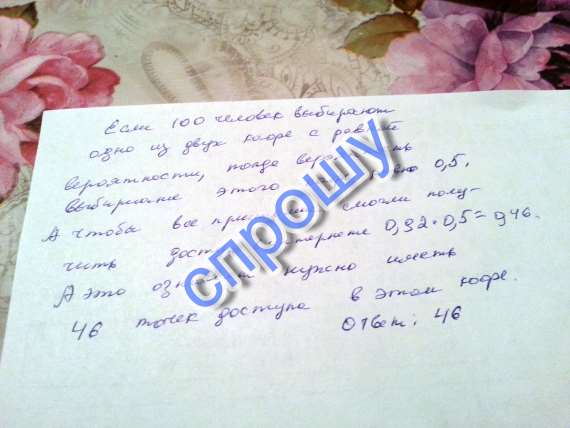 Если 100 человек выбирают
одно из двух кафе с равной
вероятности, тогда
выбирание этого 0,5.
А чтобы все смогли полу-
чить 0,92·0,5=0,46.
А это нужно иметь
46 точек доступа в этом кафе.
Ответ: 46
спрошу